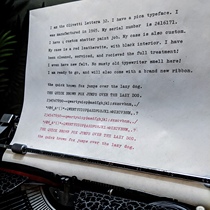 I am the Olivetti Lettera 32. I have a pica typeface. I
was manufactured in 1965. My serial number is 2626171.
I have a custom shatter paint job. My case is also custom.
My case is a red leatherette, with black interior. I have
been cleaned, serviced, and recieved the full treatment!
I even have new felt. No musty old typewriter smell here!
I am ready to go, and will also come with a brand new ribbon.
the quick brown fox jumps over the lazy dog.
THE QUICK BROWN FOX JUMPS OVER THE LAZY DOG.
THE QUICK BROWN FOX JUMPS OVER THE LAZY DOG.
the quick brown fox jumps over the lazy dog.